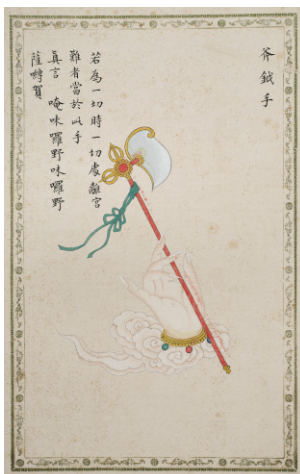 斧鉞手
若為一切時一切處離官
難者當於此手
真言　唵味囉野味囉野
薩嚩賀